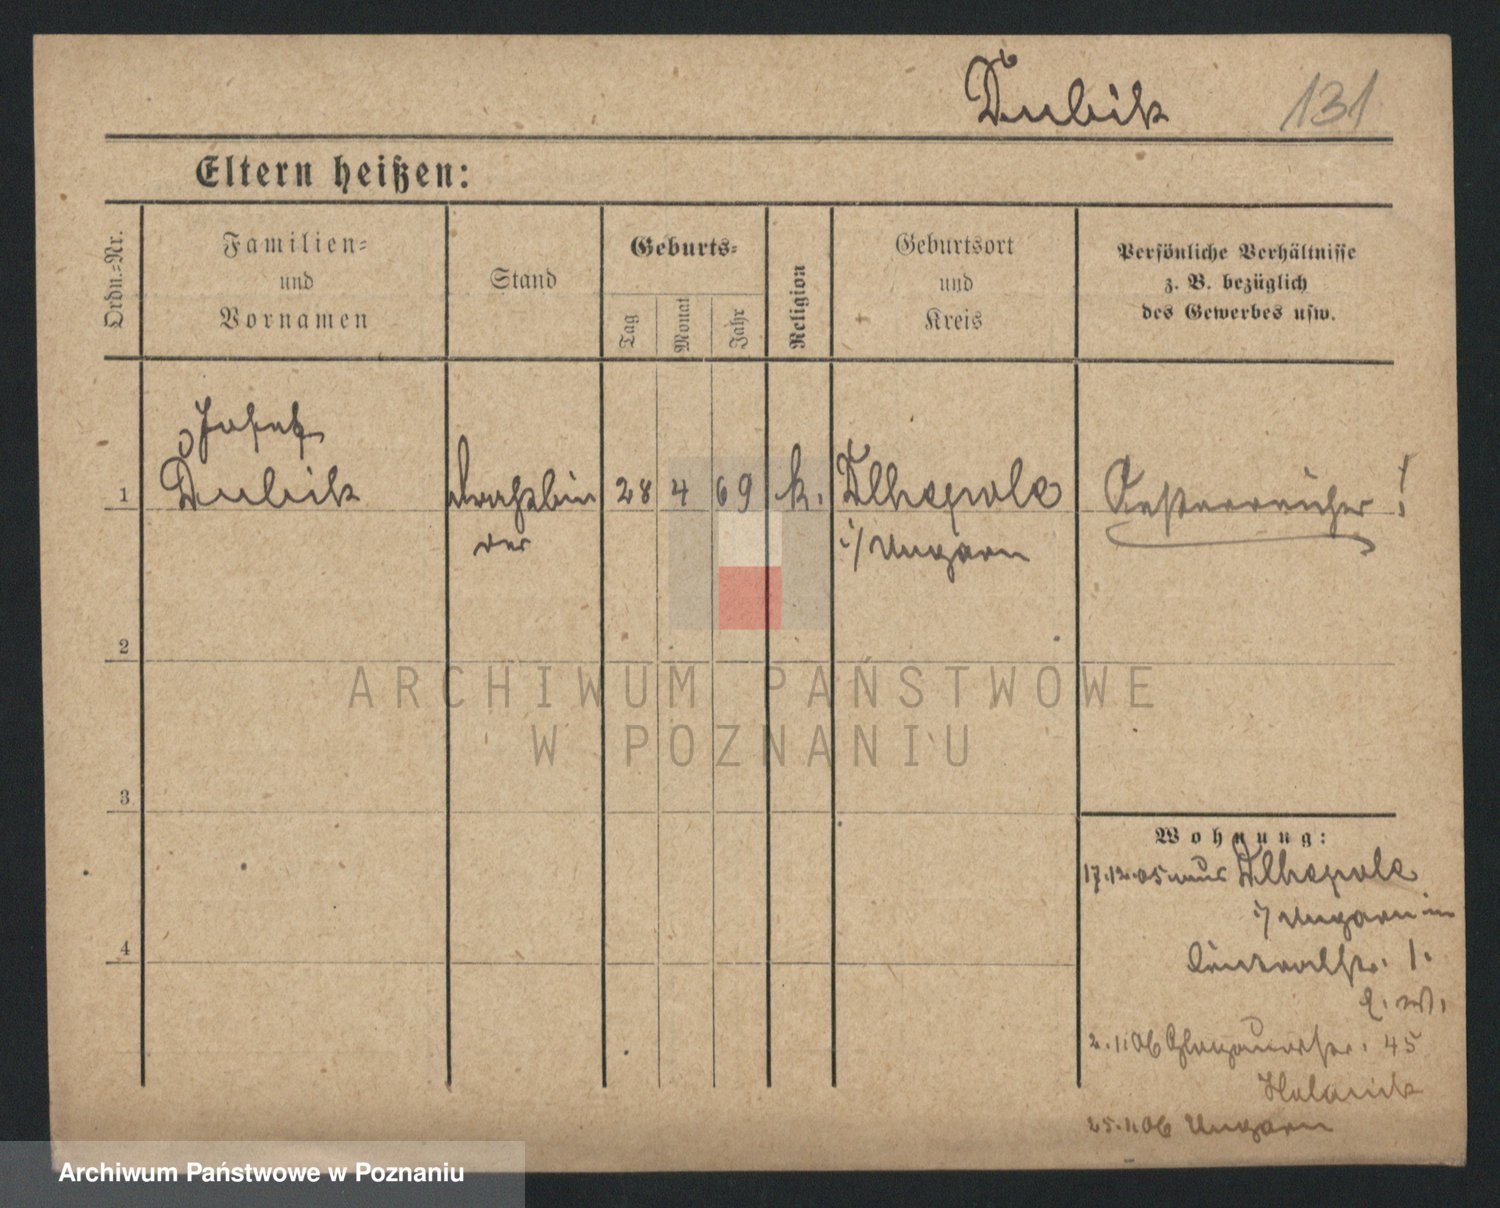 Dubik 131
Eltern heißen:
Ordn.-Nr.
Familien-
und
Vornamen
Stand
Geburts-
Tag
Monat
Jahr
Religion
Geburtsort
und
Kreis
Persönliche Verhältnisse
z. B. bezüglich
des Gewerbes usw.
Josef
1 Dubik Drahtbin 28 4 69 k. Dlhepole Oesterreicher!
der i/ Ungarn
2
ARCHIWUM PAŃSTWOWE
W POZNANIU
3
Wohnung:
17.12.05 aus Dlhepole
i/ Ungarn in
str. 1.
2.1.06 Glogauerstr. 45
25.1.06 Ungarn
4
Archiwum Państwowe w Poznaniu